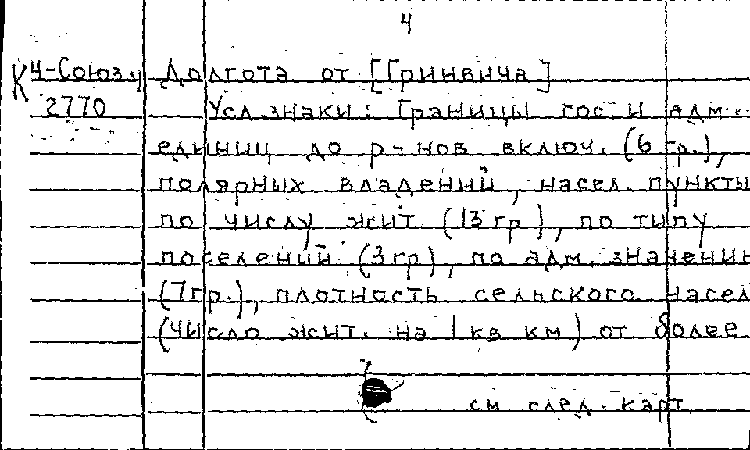 4
К 4-Союз.у Долгота от [Гринвича]
2770 Усл.знаки: Границы гос и адм.
единиц до р-нов включ. (6 гр.),
полярных владений, насел. пункты
по числу жит (13 гр), по типу
поселений (3гр), по адм. значению
(7гр.), плотность сельского насел
(число жит. на 1 кв км) от более
см след. карт